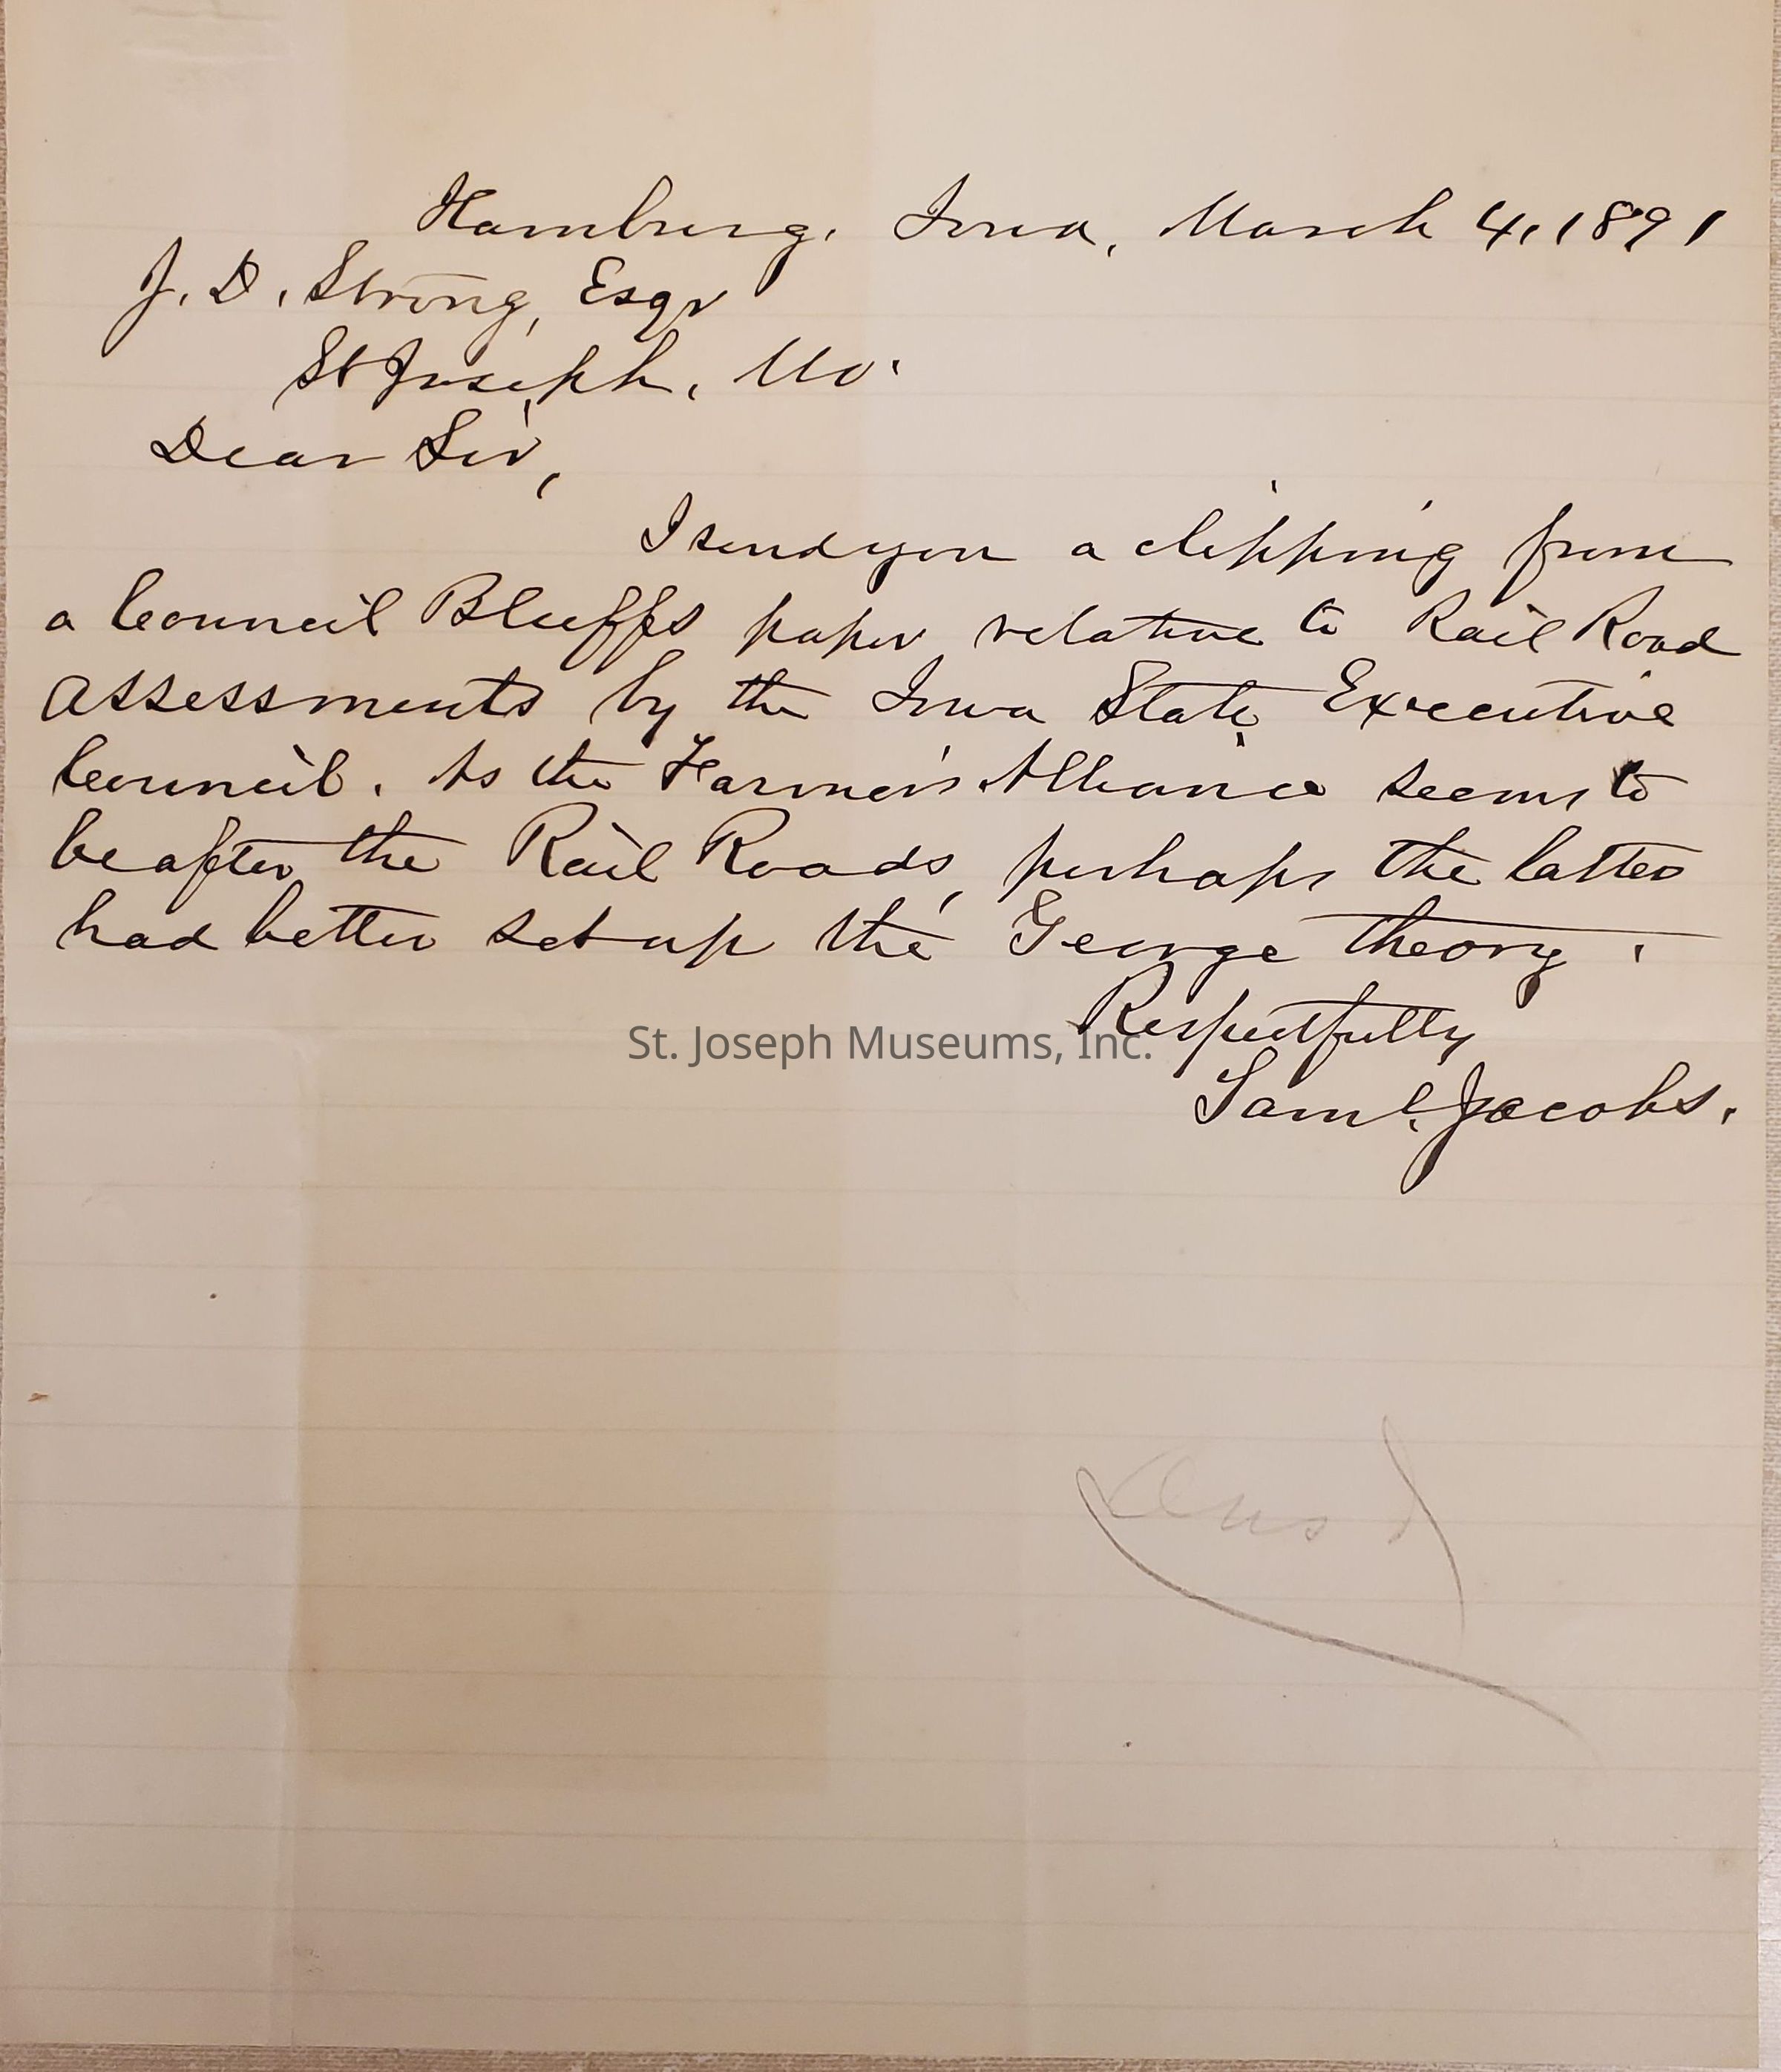 Hamburg, Iowa, March 4, 1891
J. D. Strong, Esqr
St Joseph, Mo.
Dear Sir,
I send you a clipping from
a Council Bluffs paper relative to Rail Road
assessments by the Iowa State Executive
Council. As the Farmer's Alliance seems to
be after the Rail Roads, perhaps the latter
had better set up the George theory.
Respectfully
St. Joseph Museums, Inc.
Saml. Jacobs.